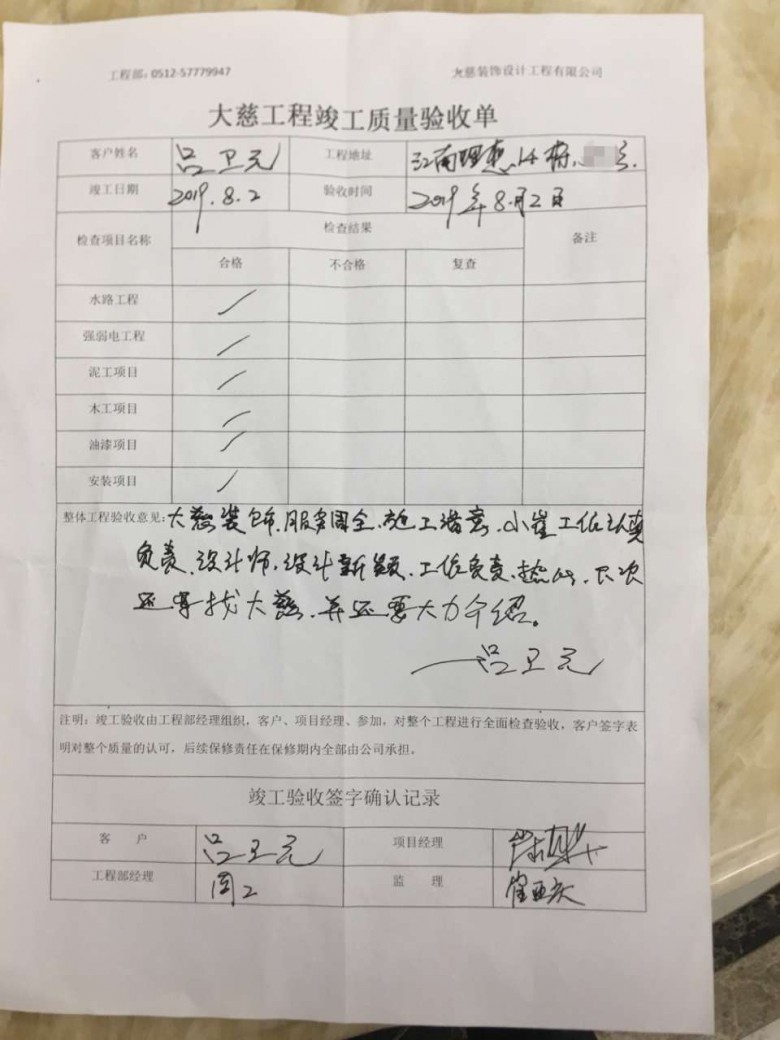 工程部：0512-57779947 大慈装饰设计工程有限公司
大慈工程竣工质量验收单
客户姓名 吕卫元 工程地址 江南理想14栋 号.
竣工日期 2019.8.2 验收时间 2019年8月2日
检查项目名称 检查结果 备注
合格 不合格 复查
水路工程
强弱电工程
泥工项目
木工项目
油漆项目
安装项目
整体工程验收意见：大慈装饰,服务周全,施工满意,小崔工作认真
负责,设计师,设计新颖,工作负责,热心,下次
还寻找大慈,并还要大力介绍。
——吕卫元
注明：竣工验收由工程部经理组织，客户、项目经理、参加，对整个工程进行全面检查验收，客户签字表
明对整个质量的认可，后续保修责任在保修期内全部由公司承担。
竣工验收签字确认记录
客 户 吕卫元 项目经理
工程部经理 监 理